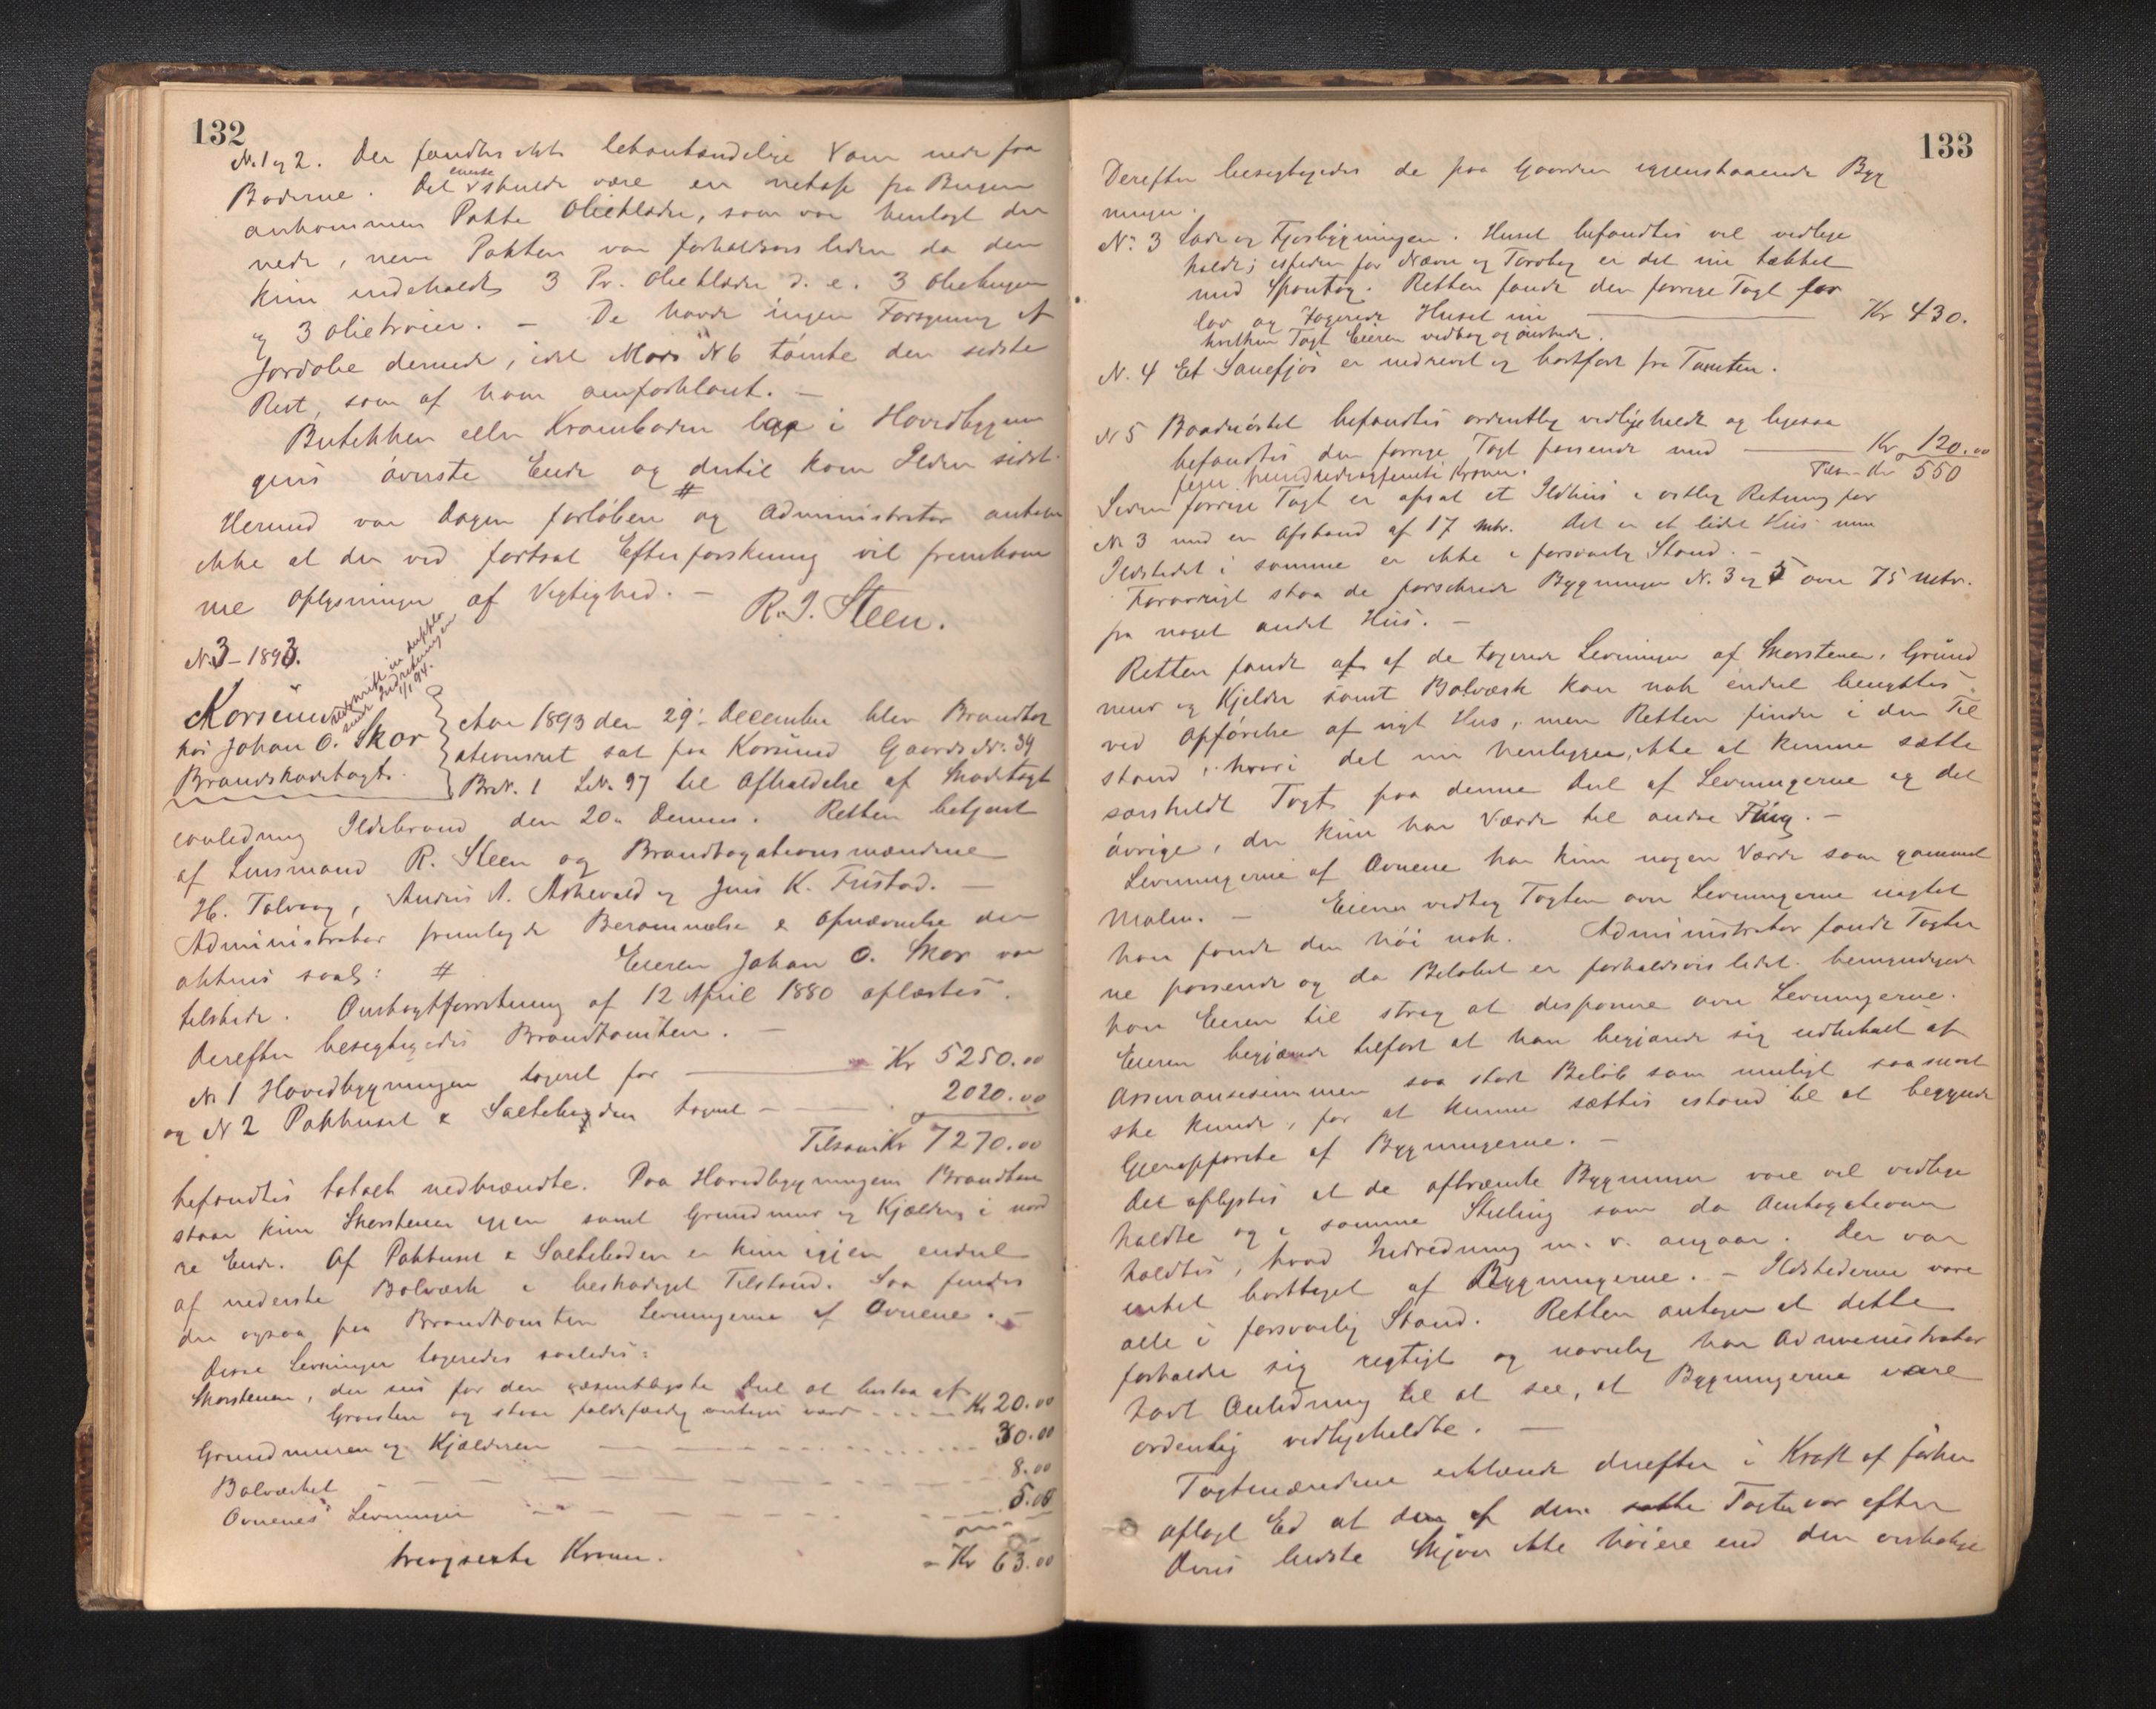 132
No. 1 og 2. Der fandtes ikke letantændelige Varer nede paa
Boderne. Det eneste skulde være en netop fra Bergen
ankommen Pakke Olieklæder, som var henlagt der
nede, men Pakken var forholdsvis liden da den
kun indeholdt 3 Pr. Olieklæder d. e. 3 Oliebuxer
og 3 olietrøier. – De havde ingen Forsyning af
Jordolie dernede, idet No 6 tømte den sidste
Rest, som af ham omforklaret. –
Butikken eller Krambaden laa i Hovedbygnin
gens øverste Ende og dertil kom Ilden sidst.
#
Hermed var Dagen forløben og Administrator antager
ikke at der ved fortsat Efterforskning vil fremkom
me Oplysninger af Vigtighed. –
R. J. Steen.
No. 3 – 1893.
Udskrift in duplo
sendt Indretningen
1/1 94.
Korsund
hos Johan O. Skor
Brandskadetagt.
Aar 1893 den 29. December blev Brandtax
ationsret sat paa Korsund Gaards No. 39
Br.N. 1 L.N. 97 til Afholdelse af Skadetagt
i anledning Ildebrand den 20. Dennes. Retten betjent
af Lensmand R. Steen og Brandtaxationsmændene
H. Talvaag, Andreas A. Askevold og Jens K. Fristad. –
Administrator fremlagde Berammelse & Opnævnelse der
aktens saal: # Eieren Johan O. Skor var
tilstede. Omtagtforretning af 12 April 1880 oplæstes.
Derefter besigtigedes Brandtomten. –
No 1 Hovedbygningen taxeret for – Kr 5250.00
og No 2 Pakhuset & Salteboden taxeret – 2020.00
Tilsam. Kr 7270.00
befandtes totalt nedbrændte. Paa Hovedbygningens Brandtomt
staar kun Skorstenen igjen samt Grundmur og Kjælder i nord
re Ende. Af Pakhuset & Salteboden er kun igjen endel
af nederste Bolværk i beskadiget Tilstand. Saa findes
der ogsaa paa Brandtomten Levningerne af Ovnene. –
Disse Levninger taxeredes saaledes:
Skorstenen, der sees for den væsentligste Deel at bestaa af
Graasten og staar faldefærdig antages værd – Kr 20.00
Grundmuren og Kjælderen – 30.00
Bolværket – 8.00
Ovnenes Levninger – 5.00
tregsexti Kroner. – Kr 63.00
133
Derefter besigtigedes de paa Gaarden igjenstaaende Byg
ninger.
No. 3 Lade og Fjøsbygningen. Huset befandtes vel vedlige
holdt; istedenfor Næver og Torvtag er det nu tækket
med Spontag. Retten fandt den forrige Tagt for
lav og taxerede Huset nu – Kr 430.
hvilken Tagt Eieren vedtog og ønskede.
N. 4 Et Sauefjøs er nedrevet og bortført fra Tomten.
No 5 Baadnøstet befandtes ordentlig vedligeholdt og ligesaa
befandtes den forrige Tagt passende med – Kr 120.00
fem hundredeogfemti Kroner. Tilsm Kr 550
Siden forrige Tagt er opsat et Ildhus i østlig Retning for
No 3 med en Afstand af 17 mtr. Det er et lidet Hus men
Ildstedet i samme er ikke i forsvarlig Stand. –
Forøvrigt staa de forskrevne Bygninger N. 3 og 5 over 75 mtr.
fra noget andet Hus. –
Retten fandt at af de taxerede Levninger af Skorstenen, Grund
mur og Kjelder samt Bolværk kan nok endel benyttes
ved Opførelse af nyt Hus, men Retten finder i den Til
stand, hvori det nu henligger, ikke at kunne sætte
særskildt Tagt paa denne Del af Levningerne og det
øvrige, der kun har Værd til andre Ting. –
Levningerne af Ovnene har kun nogen Værdi som gammel
Malm. – Eieren vedtog Tagten over Levningerne uagtet
han fandt den høi nok. Administrator fandt Tagter
ne passende og da Beløbet er forholdsvis lidet bemyndigede
han Eieren til strax at disponere over Levningerne.
Eieren begjærede tilført at han begjærede sig udbetalt af
Assurancesummen saa stort Beløb som muligt saasnart
ske kunde, for at kunne sættes istand til at begynde
Gjenopførelse af Bygningerne. –
Det oplystes at de afbrændte Bygninger vare vel vedlige
holdte og i samme Stilling som da Omtaxationen
holdtes, hvad Indredning m. v. angaar. Der var
intet borttaget af Bygningerne. – Ildstederne vare
alle i forsvarlig Stand. Retten antager at dette
forholder sig rigtigt og navnlig har Administrator
havt Anledning til at see, at Bygningerne vare
ordentlig vedligeholdte. –
Tagtmændene erklærede derefter i Kraft af forhen
aflagt Ed at den af dem satte Tagt var efter
Deres bedste Skjøn ikke høiere end den virkelige